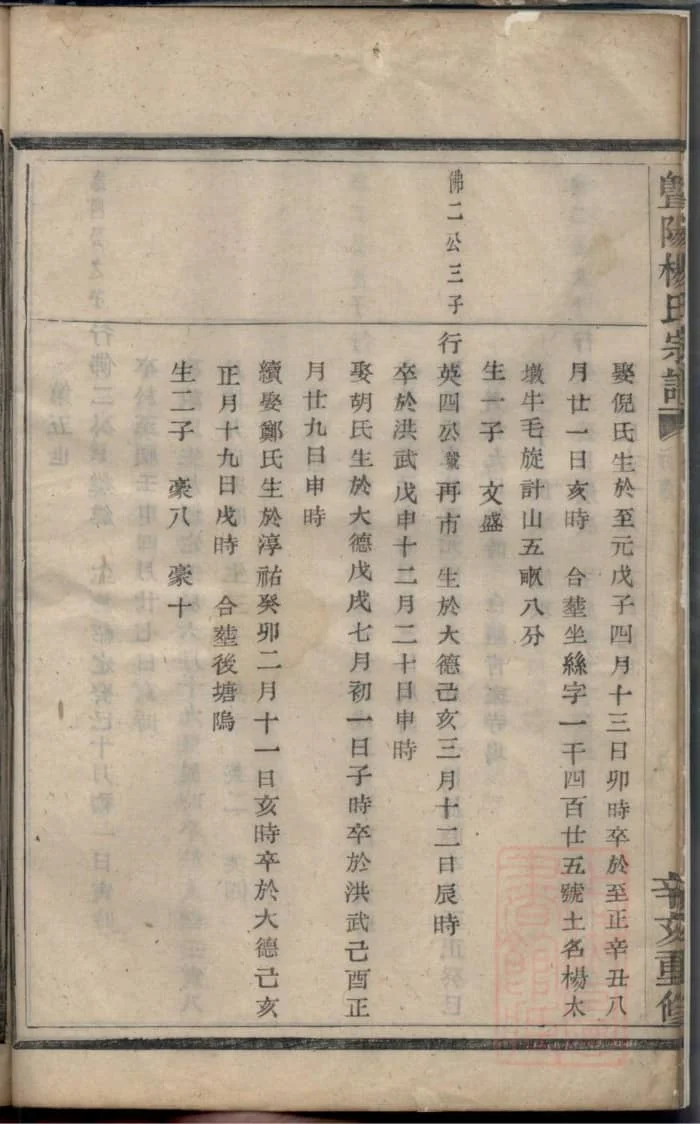 暨陽楊氏宗譜
辛亥重修
娶倪氏生於至元戊子四月十三日卯時卒於至正辛丑八
月廿一日亥時 合塟坐絲字一千四百廿五號土名楊木
墩牛毛旋計山五畝八分
生一子 文盛
佛二公三子
行英四公號再市 生於大德己亥三月十二日辰時
卒於洪武戊申十二月二十日申時
娶胡氏生於大德戊戌七月初一日子時卒於洪武己酉正
月廿九日申時
續娶鄭氏生於淳祐癸卯二月十一日亥時卒於大德己亥
正月十九日戌時 合塟後塘塢
生二子 豪八 豪十